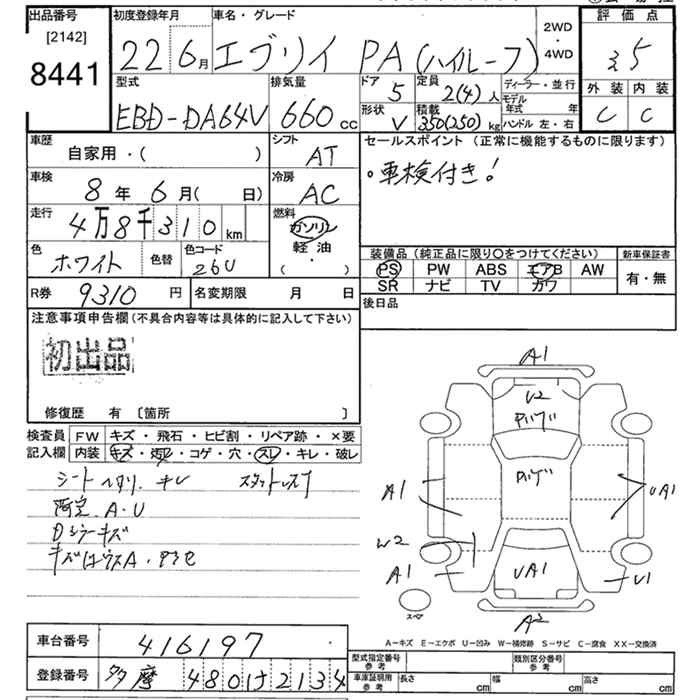 出品番号 初度登録年月 車名・グレード 2WD・4WD 評価点
[2142]
8441
22年6月 エブリイ PA(ハイルーフ) 3.5
型式 排気量 ドア 5 定員 2(4)人 ディーラー・並行 外装 内装
EBD-DA64V 660cc 形状 V 積載 350(250)kg モデル年式 年 C C
ハンドル 左・右
車歴 シフト セールスポイント (正常に機能するものに限ります)
自家用・( ) AT
・車検付き!
車検 冷房
8年6月( 日) AC
走行 燃料
4万8千310km ガソリン
軽油
・( )
色 ホワイト 色替 色コード 26U
装備品 (純正品に限り○をつけてください) 新車保証書
PS PW ABS エアB AW 有・無
SR ナビ TV カワ
R券 9310円 名変期限 月 日
後日品
注意事項申告欄(不具合内容等は具体的に記入して下さい)
初出品
修復歴 有 [箇所 ]
検査員 FW キズ・飛石・ヒビ割・リペア跡・×要
記入欄 内装 キズ・汚レ・コゲ・穴・スレ・キレ・破レ
シート ヘタリ、キレ
A・U
キズ
A1
U2
A1
UA1
W2
A1
UA1
U1
A2
スペア
A-キズ E-エクボ U-凹み W-補修跡 S-サビ C-腐食 XX-交換済
車台番号 416197
登録番号 多摩 480け2134
型式指定番号 参考 類別区分番号 参考
車庫証明用 参考 長さ cm 幅 cm 高さ cm